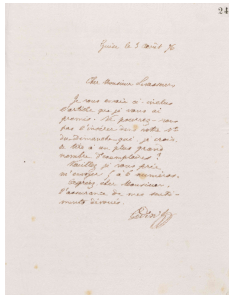 24
le 3 août 76
Cher Monsieur
Je vous envoie ci-inclus
l'article que je vous ai
promis. Ne pourrez-vous
pas l'insérer
du dimanche qui, je crois,
a tiré à un plus grand
nombre d'exemplaires?
Veuillez, je vous prie,
m'envoyer 5 à 6 numéros.
Agréez cher Monsieur
l'assurance de mes senti-
ments dévoués.